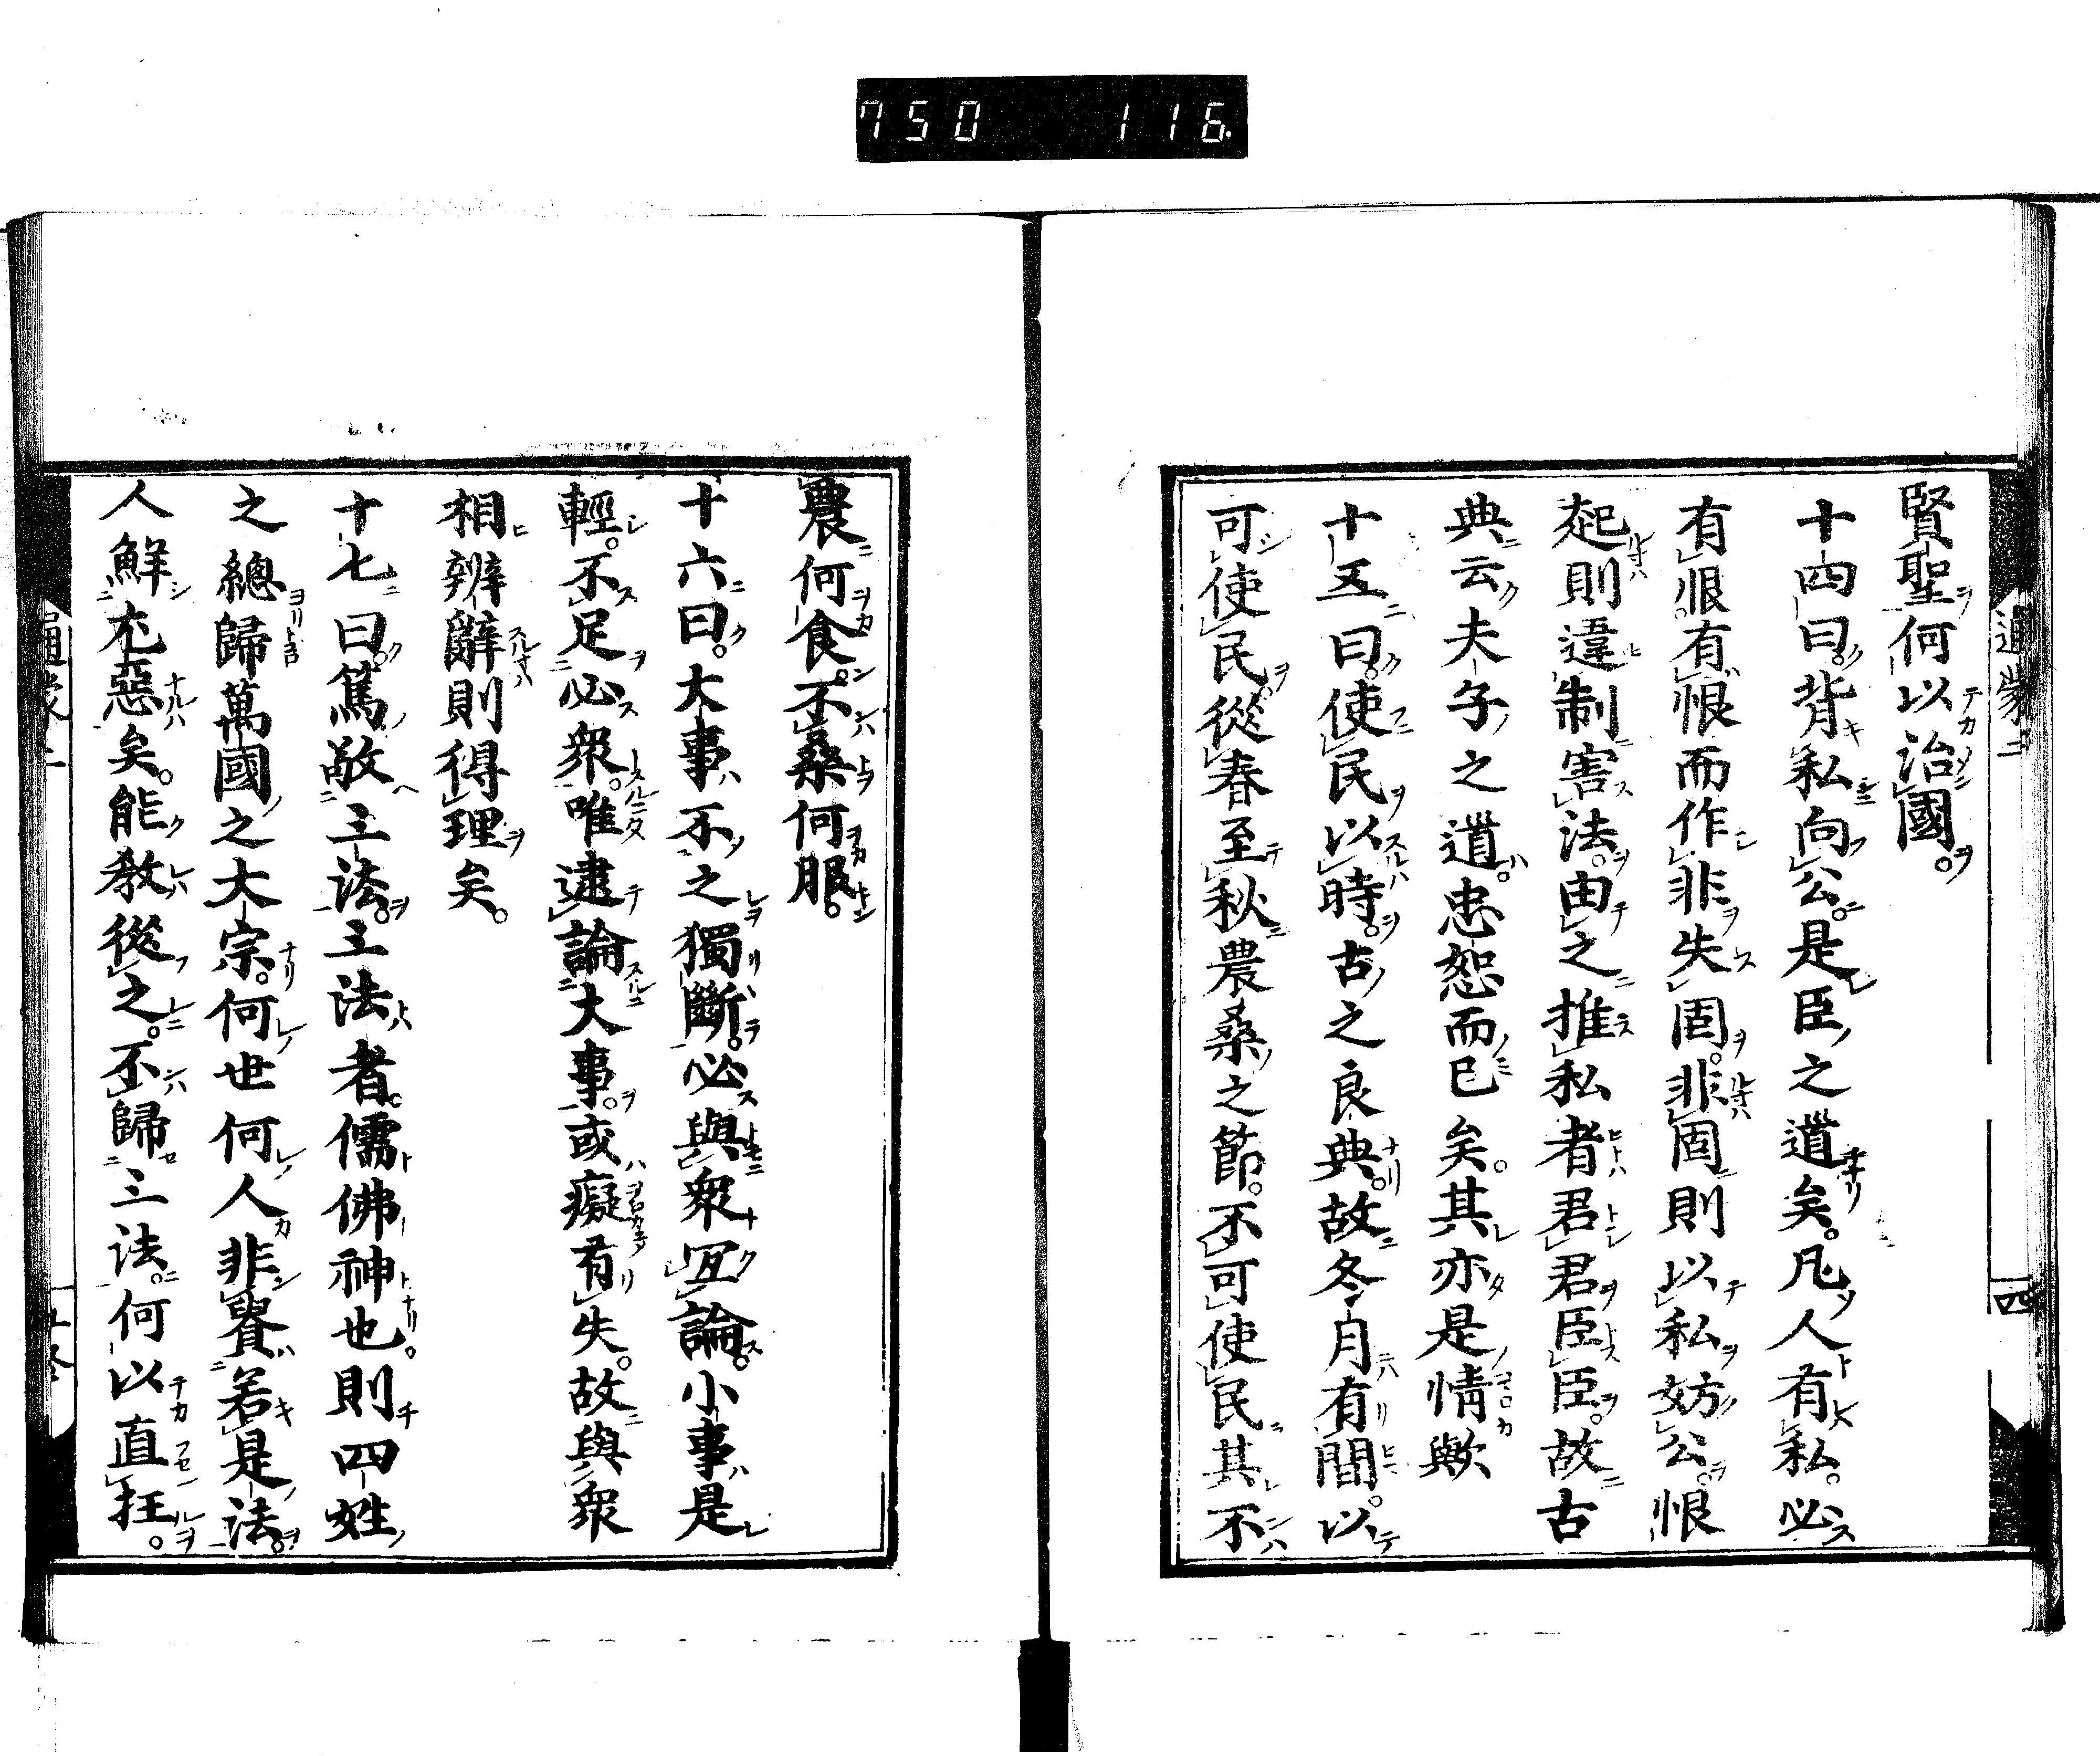 750 116.
賢聖何以治國。
十四曰。背私向公。是臣之道矣。凡人有私。必
有恨。有恨而作非失固。非固則以私妨公。恨
起則違制害法。由之推私者君君臣臣。故古
典云夫子之道。忠恕而已矣。其亦是情歟
十五曰。使民以時。古之良典。故冬月有間。以
可使民。從春至秋農桑之節。不可使民其不
農何食。不桑何服。
十六曰。大事不之獨斷。必與衆宜論。小事是
輕。不足必衆。唯逮論大事。或癡有失。故與衆
相辨辭則得理矣。
十七曰。篤敬三法。三法者。儒佛神也。則四姓
之總歸萬國之大宗。何世何人非貴若是法。
人鮮尤惡矣。能教從之。不歸三法。何以直抂。
四